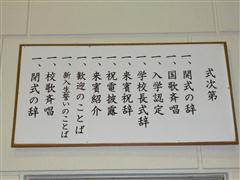 式次第
一、開式の辞
一、国歌斉唱
一、入学認定
一、学校長式辞
一、来賓祝辞
一、祝電披露
一、来賓紹介
一、歓迎のことば
一、新入生誓いのことば
一、校歌斉唱
一、閉式の辞